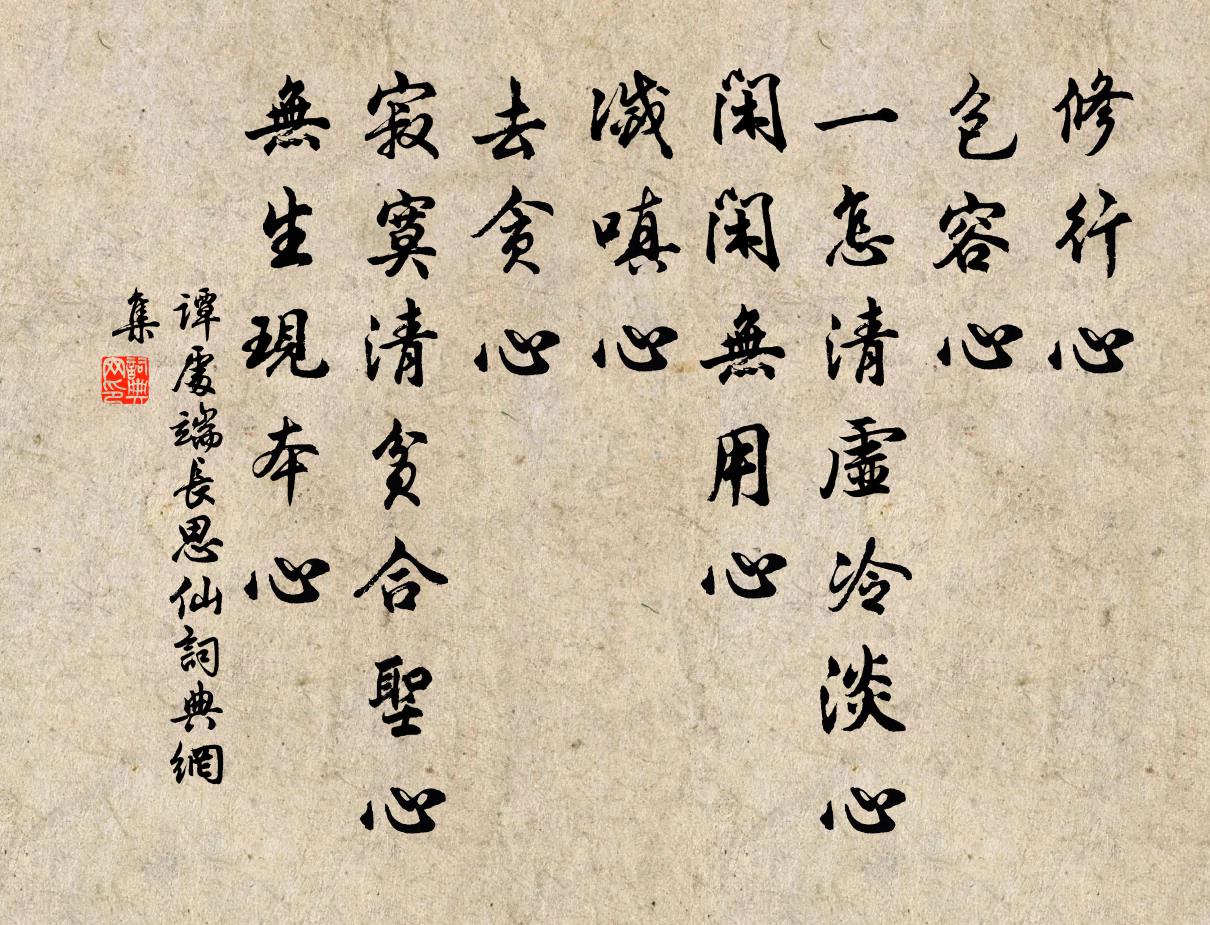 修行心
包容心
一怎清虛冷淡心
閑閑無用心
滅嗔心
去貪心
寂寞清貧合聖心
無生現本心
譚處端長思仙詞典網
集
詞典
网印